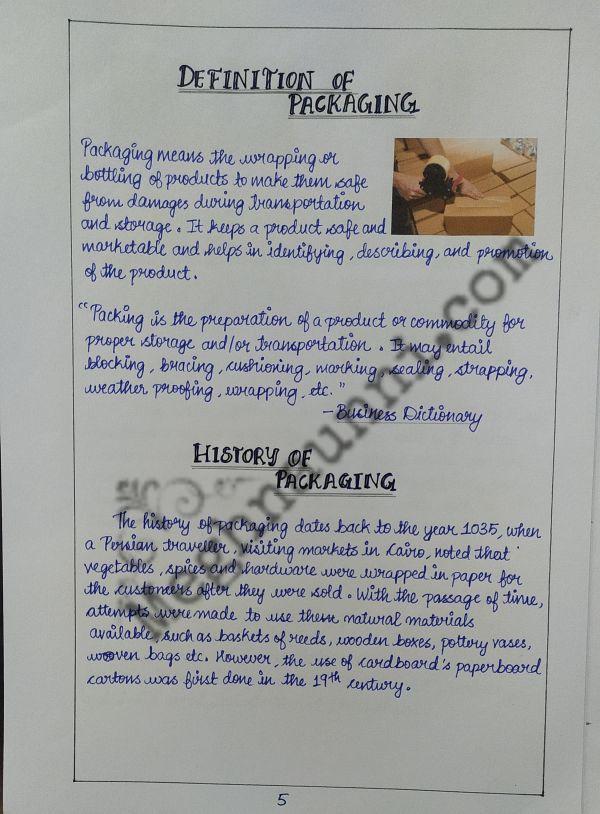 DEFINITION OF
PACKAGING
Packaging means the wrapping or
bottling of products to make them safe
from damages during transportation
and storage. It keeps a product safe and
marketable and helps in identifying, describing, and promotion
of the product.
"Packing is the preparation of a product or commodity for
proper storage and/or transportation. It may entail
blocking, bracing, cushioning, marking, sealing, strapping,
weather proofing, wrapping, etc."
- Business Dictionary
HISTORY OF
PACKAGING
The history of packaging dates back to the year 1035, when
a Persian traveller, visiting markets in Cairo, noted that
vegetables, spices and hardware were wrapped in paper for
the customers after they were sold. With the passage of time,
attempts were made to use them natural materials
available, such as baskets of reeds, wooden boxes, pottery vases,
woven bags etc. However, the use of cardboard's paperboard
cartons was first done in the 19th century.
5